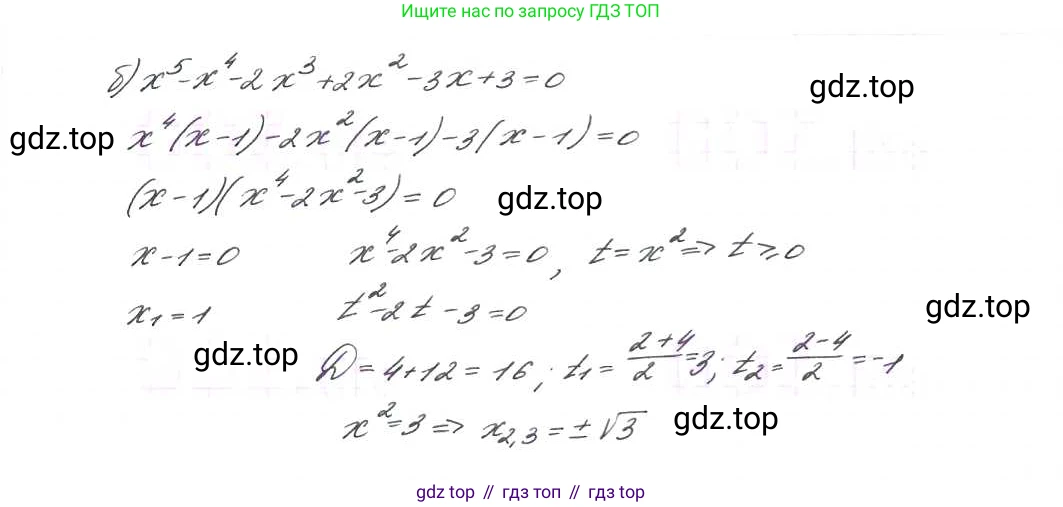 Ищите нас по запросу ГДЗ ТОП
б) x⁵-x⁴-2x³+2x²-3x+3=0
gdz.top
gdz.top x⁴(x-1)-2x²(x-1)-3(x-1)=0
(x-1)(x⁴-2x²-3)=0 gdz.top
x-1=0 x⁴-2x²-3=0, t=x²=> t⩾0
x₁=1 t²-2t-3=0 gdz.top
gdz.top D=4+12=16; t₁=(2+4)/2=3; t₂=(2-4)/2=-1
x²=3=> x₂,₃=±√3 gdz.top
gdz top // гдз топ // gdz top